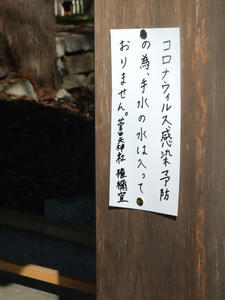 コロナウィルス感染予防
の為、手水の水は入って
おりません。菅田天神社 権禰宜